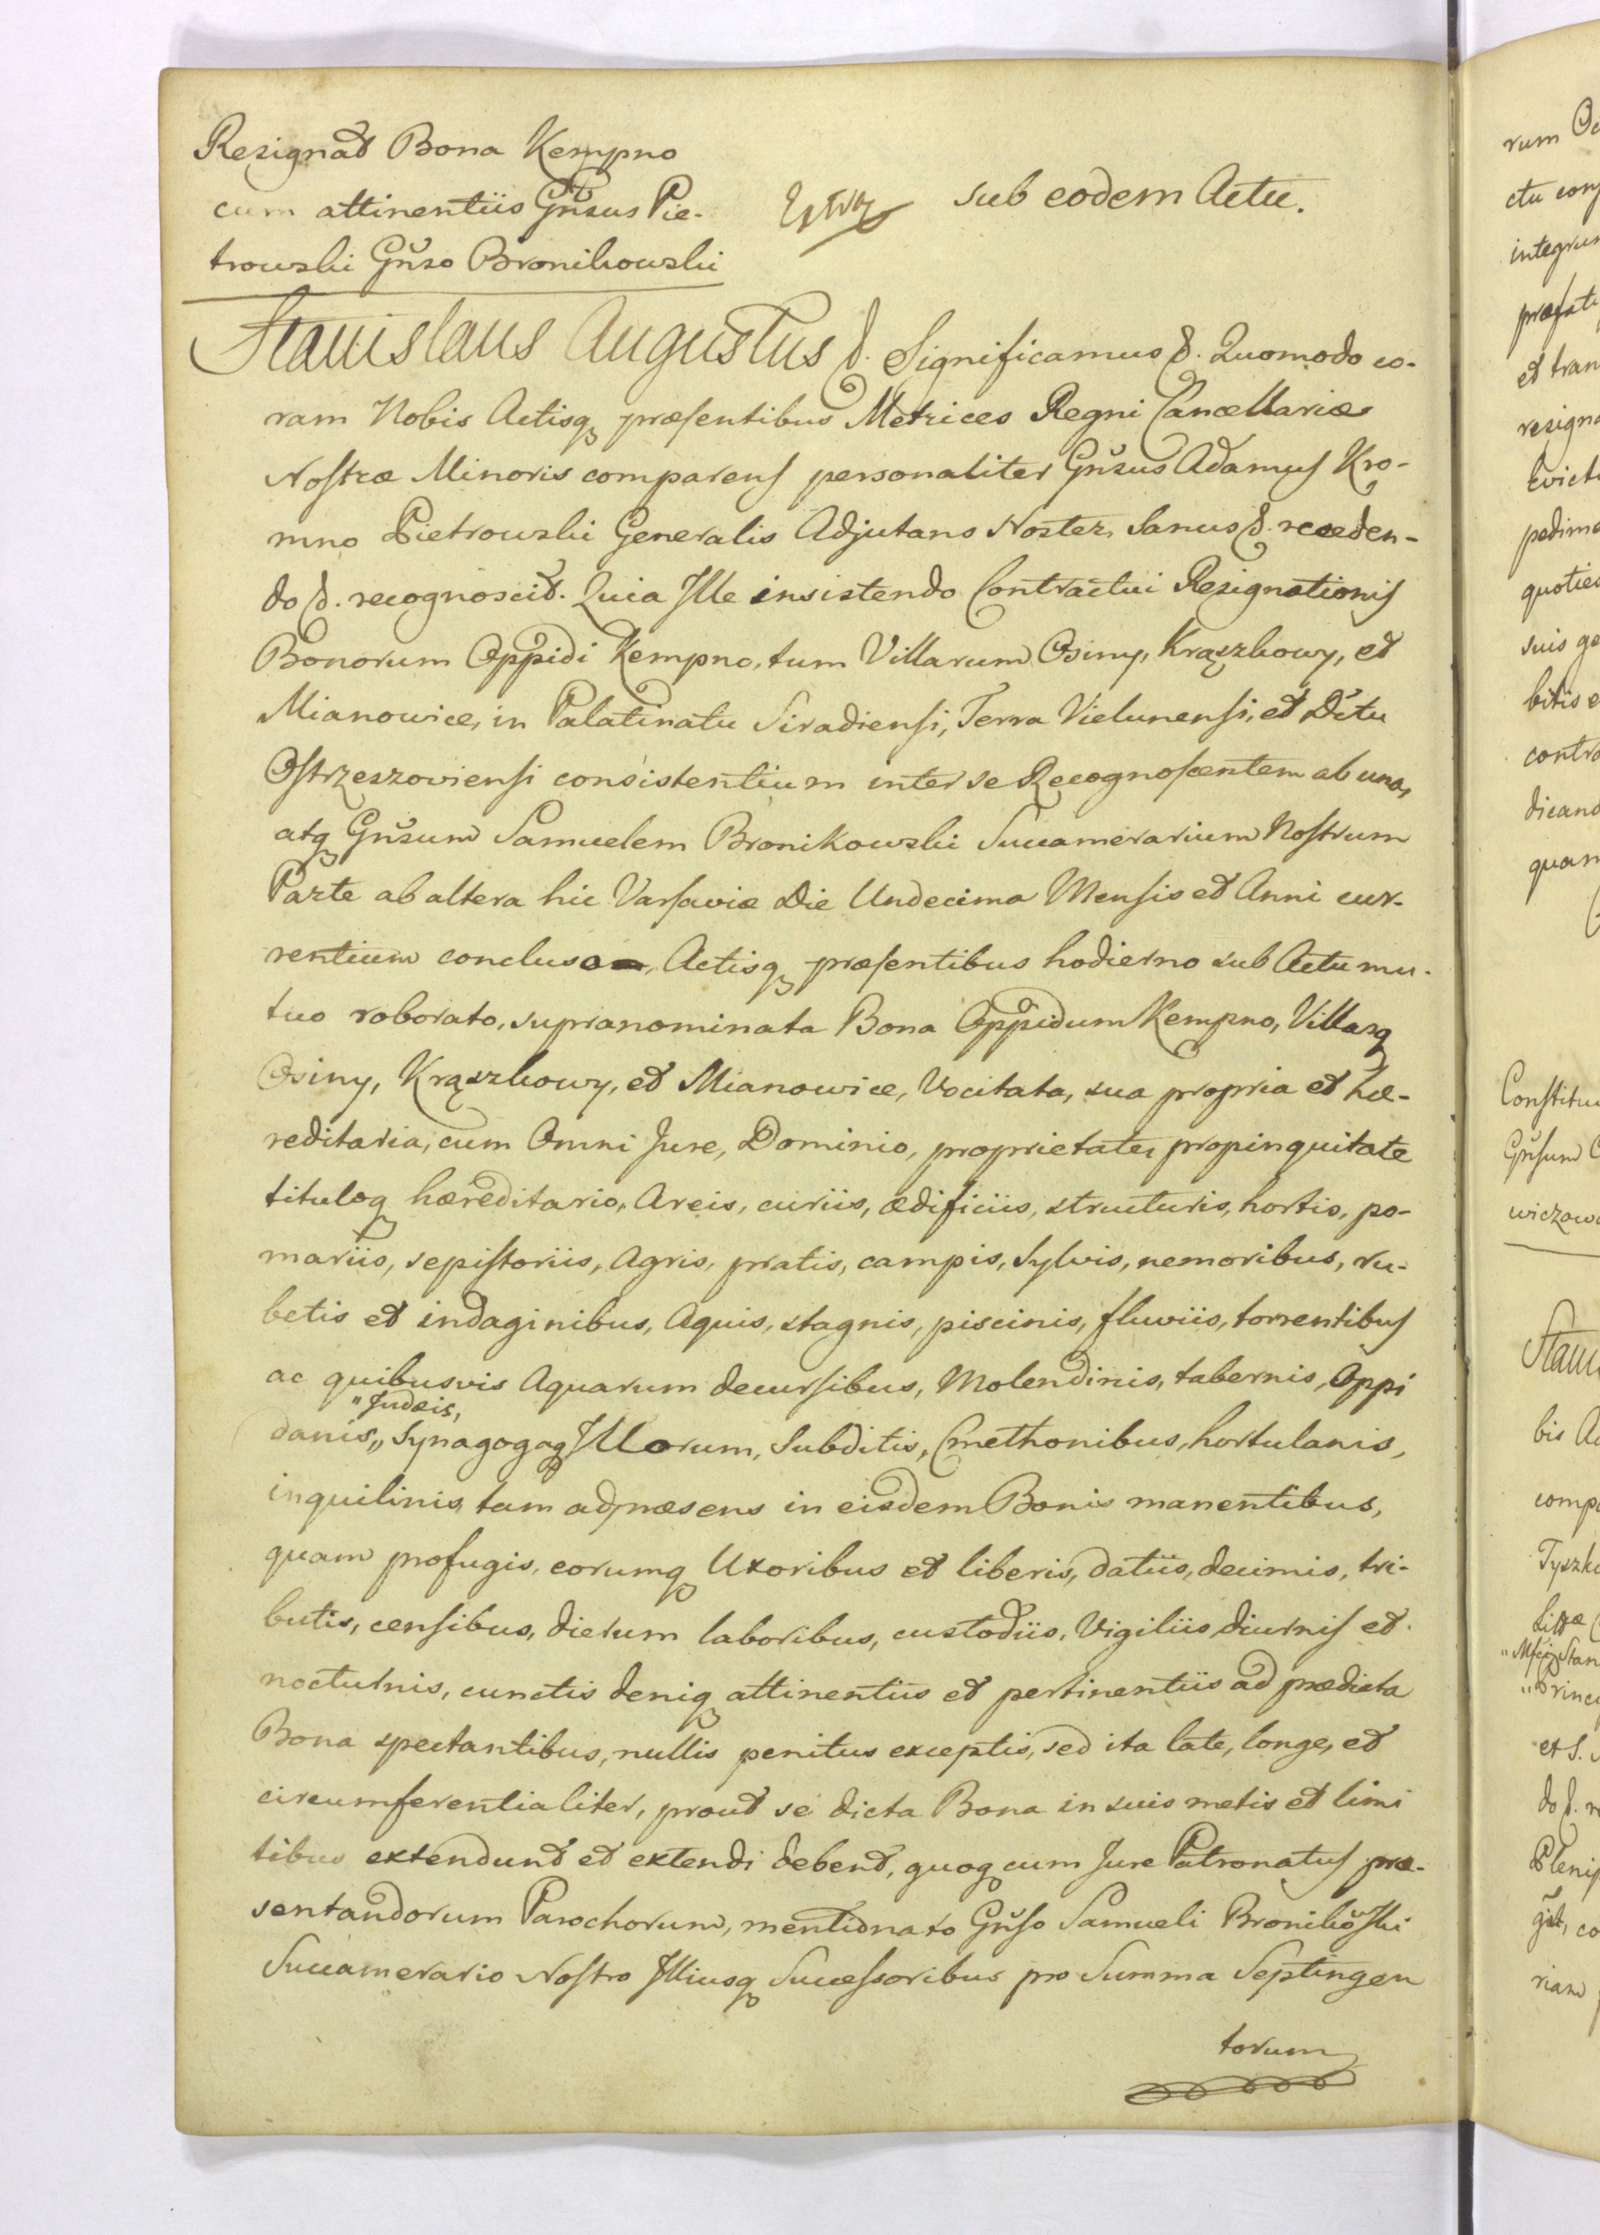 Resignat Bona Kempno
cum attinentiis Gn̄sus Pie-
trowski Gn̄so Bronikowski
sub eodem Actu.
Stanislaus Augustus &. Significamus &. Quomodo co-
ram Nobis Actisq præsentibus Metrices Regni Cancellariæ
Nostræ Minoris comparens personaliter Gn̄sus Adamus Kro-
mno Pietrowski Generalis Adjutans Noster, Sanus &. receden-
do &. recognoscit. Quia Ille insistendo Contractui Resignationis
Bonorum Oppidi Kempno, tum Villarum Osiny, Krąszkowy, et
Mianowice, in Palatinatu Siradiensi, Terra Vielunensi, et Dĩtu
Ostrzeszoviensi consistentium inter se Recognoscentem ab una,
atq Gn̄sum Samuelem Bronikowski Succamerarium Nostrum
Parte ab altera hic Varsaviæ Die Undecima Mensis et Anni cur-
rentium concluso, Actisq præsentibus hodierno sub Actu mu-
tuo roborato, supranominata Bona Oppidum Kempno, Villasq
Osiny, Krąszkowy, et Mianowice, Vocitata, sua propria et hæ-
reditaria, cum Omni Jure, Dominio, proprietate, propinquitate
tituloq hæreditario, Areis, curiis, ædificiis, structuris, hortis, po-
mariis, sepistoriis, Agris, pratis, campis, Sylvis, nemoribus, ru-
betis et indaginibus, Aquis, stagnis, piscinis, fluviis, torrentibus
ac quibusvis Aquarum decursibus, Molendinis, tabernis, Oppi
"Judæis,
danis,, Synagogaq Illorum, Subditis, Cmethonibus, hortulanis,
inquilinis, tam ad præsens in eisdem Bonis manentibus,
quam profugis, eorumq Uxoribus et liberis, datiis, decimis, tri-
butis, censibus, dierum laboribus, custodiis, Vigiliis diurnis et
nocturnis, cunctis deniq attinentiis et pertinentiis ad prædicta
Bona spectantibus, nullis penitus exceptis, sed ita late, longe, et
circumferentialiter, prout se dicta Bona in suis metis et limi
tibus extendunt et extendi debent, quoq cum Jure Patronatus præ-
sentandorum Parochorum, mentionato Gn̄so Samueli Bronikoŵski
Succamerario Nostro Illiusq Successoribus pro Summa Septingen
torum